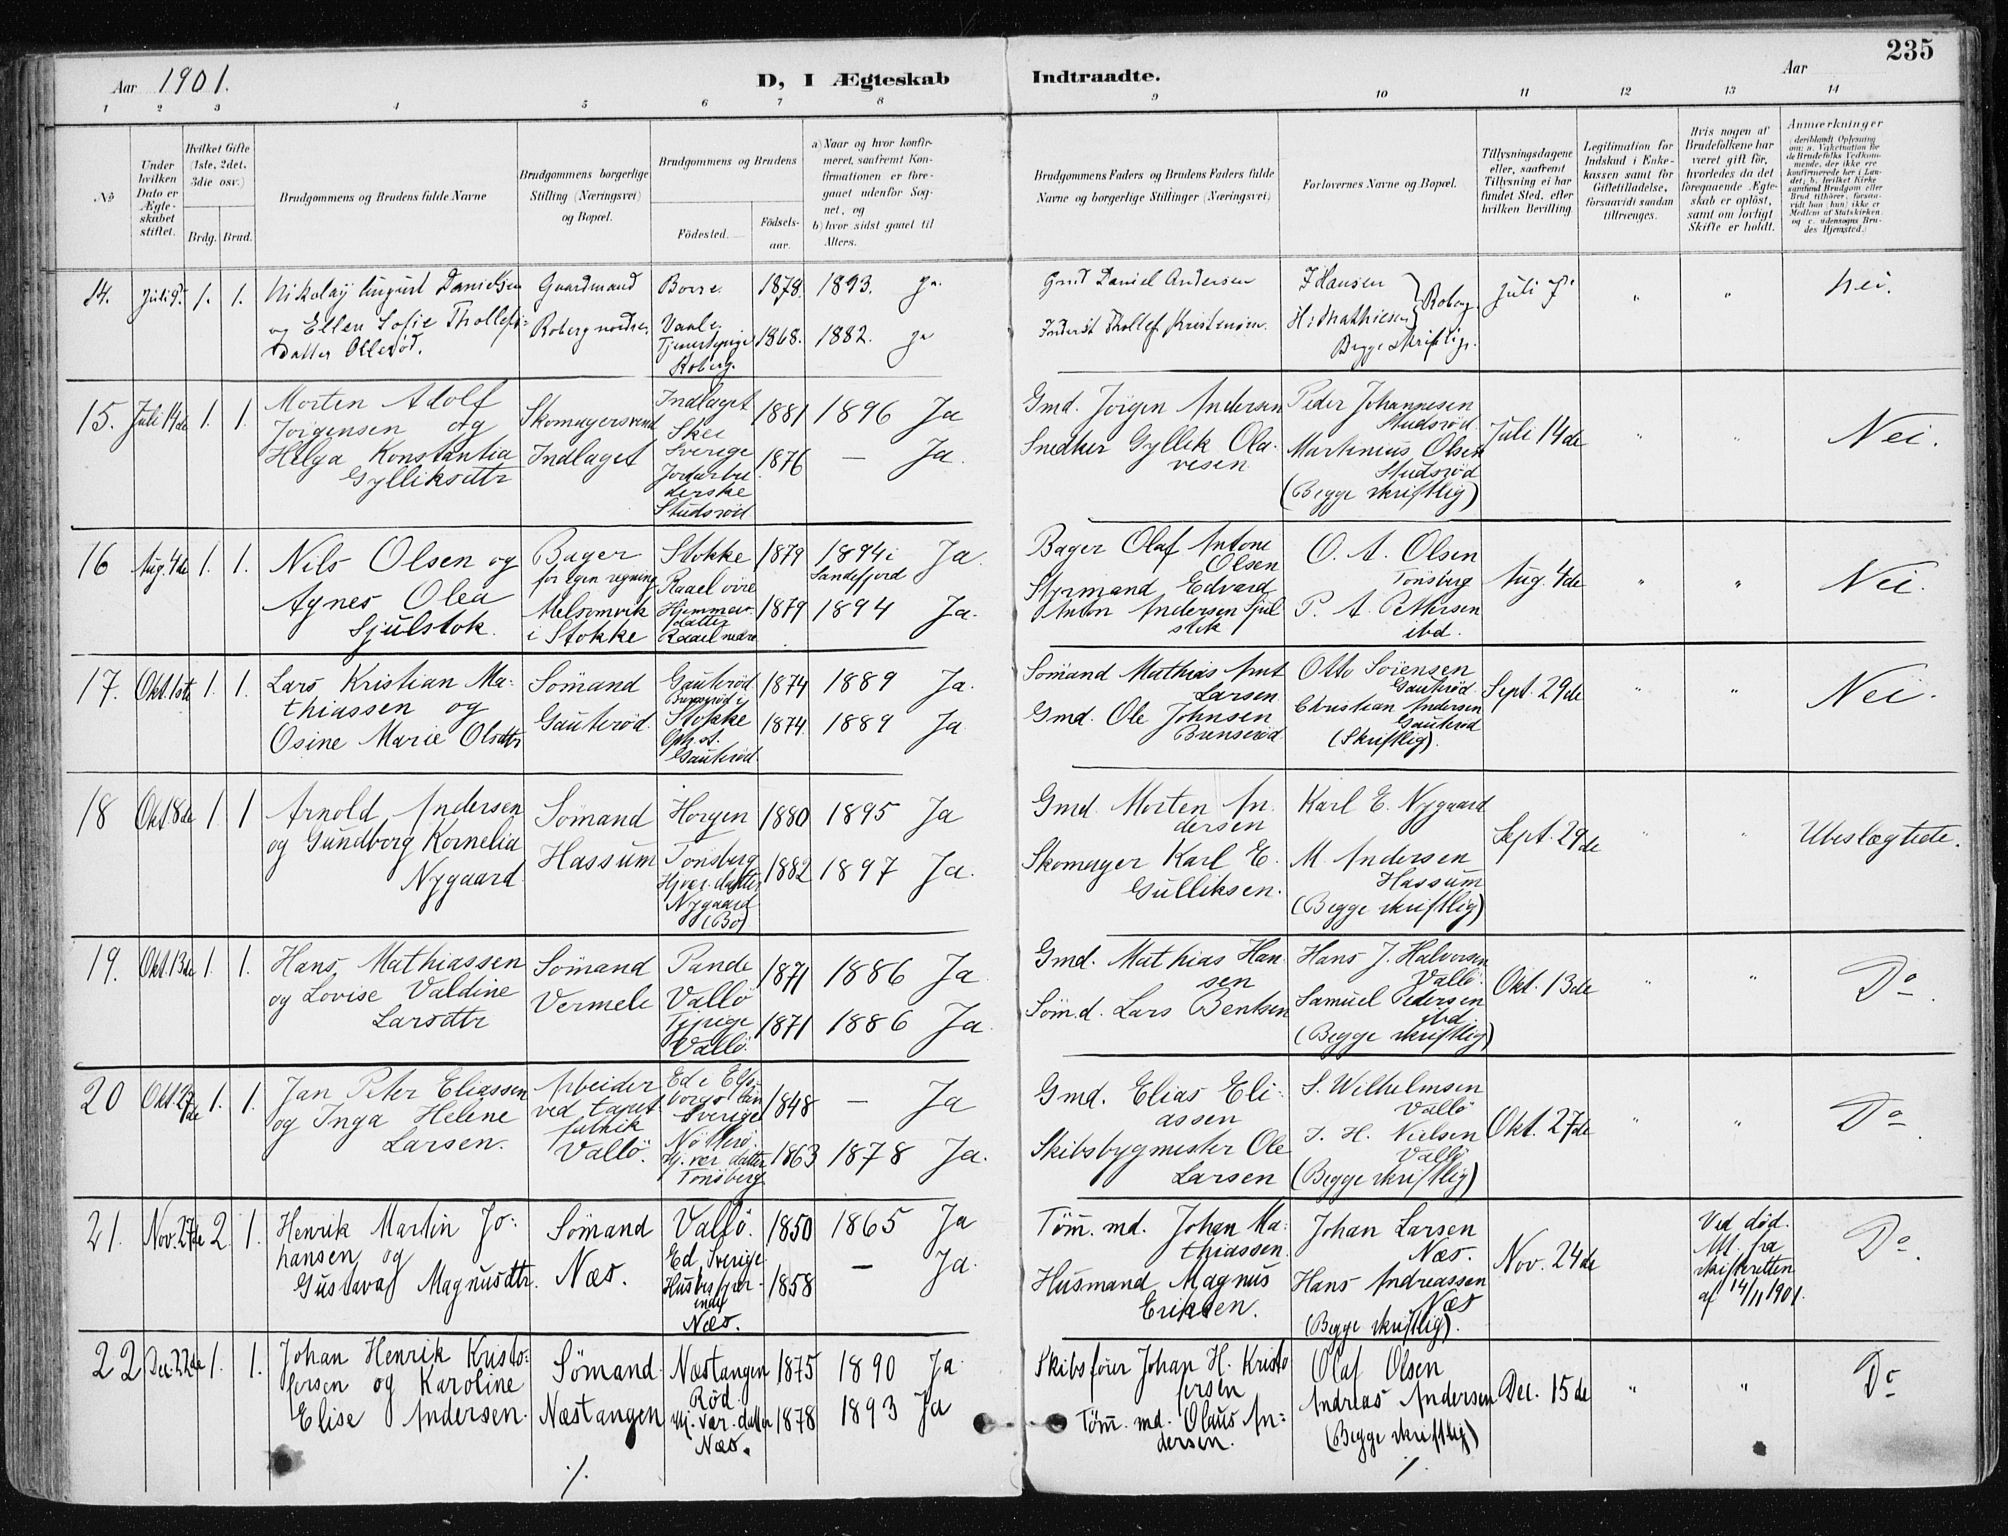 235
Aar 1901.
D, I Ægteskab Indtraadte.
Aar
1 2 3 4 5 6 7 8 9 10 11 12 13 14
No
Under hvilken Dato er Ægteskabet stiftet.
Hvilket Gifte (1ste, 2det, 3die osv.)
Brdg. Brud.
Brudgommens og Brudens fulde Navne
Brudgommens borgerlige Stilling (Næringsvei) og Bopæl.
Brudgommens og Brudens
Fødested.
Fødselsaar.
a) Naar og hvor konfirmeret, saafremt Konfirmationen er foregaaet udenfor Sognet, og
b) hvor sidst gaaet til Alters.
Brudgommens Faders og Brudens Faders fulde Navne og borgerlige Stillinger (Næringsvei)
Forlovernes Navne og Bopæl.
Tillysningsdagene eller, saafremt Tillysning ei har fundet Sted, efter hvilken Bevilling.
Legitimation for Indskud i Enkekassen samt for Giftetilladelse, forsaavidt saadan tiltrænges.
Hvis nogen af Brudefolkene har været gift før, hvorledes da det foregaaende Ægteskab er opløst, samt om lovligt Skifte er holdt.
Anmærkninger
14. Juli 9. 1. 1.
Nikolay August Danielsen
og Ellen Sofie Thollefs:
datter Ollerød.
Gaardmand
Roberg nordre.
Borre. 1878. 1893. ja.
Vaale
Tjenestepige
Roberg.
1868. 1882. ja
Gmd Daniel Andersen
Inderst Thollef Kristensen.
J Hansen
H: Mathiesen
Roberg
Begge skriftlig.
Juli 7. " " Nei.
15. Juli 14de 1. 1.
Morten Adolf
Jörgensen og
Helga Konstantia
Gylliksdtr
Skomagersvend
Indlaget
Indlaget 1881 1896 Ja
Skee
Sverige
1876 — Ja.
Studsröd
Gmd. Jörgen Andersen
Snedker Gyllik Ola-
vesen
Peder Johannesen
Studsröd
Martinius Olsen
Studsröd
(Begge skriftlig)
Juli 14de " " Nei.
16 Aug. 4de 1. 1.
Nils Olsen og
Agnes Olea
Sjulstok.
Bager
for egen regning
Melsomvik
i Stokke
Stokke 1879 1894 i Sandefjord Ja.
Raael övre
Hjemmev.
datter
Raael nedre
1879 1894 Ja.
Bager Olaf Antone
Olsen
Styrmand Edvard
Anton Andersen Sjul
stok
O. A. Olsen
Tönsberg
P. A. Pettersen
ibd.
Aug. 4de " " Nei.
17. Okt. 1ste 1. 1.
Lars Kristian Ma-
thiassen og
Osine Marie Olsdtr
Sömand
Gauteröd
Gauteröd 1874 1889 Ja.
Stokke
Oph.st.
Gauteröd
1874 1889 Ja
Sömand Mathias Ant
Larsen
Gmd. Ole Johnsen
Brenseröd
Otto Sörensen
Gauteröd
Christian Andersen
Gauteröd
(Skriftlig).
Sept. 29de " " Nei.
18 Okt. 8de 1. 1
Arnold Andersen
og Gundborg Kornelia
Nygaard
Sömand
Hassum
Horgen 1880 1895 Ja
Tönsberg
Hj vær. datter
Nygaard
(Bo)
1882 1897 Ja.
Gmd. Morten An
dersen
Skomager Karl E.
Gulliksen.
Karl E. Nygaard
M. Andersen
Hassum
(Begge skriftlig)
Sept. 29de " " Ubeslægtede.
19. Okt. 13de 1. 1.
Hans Mathiassen
og Lovise Valdine
Larsdtr
Sömand
Vermele
Rande 1871 1886 Ja.
Vallö
Vallö.
1871 1886 Ja.
Gmd. Mathias Han
sen
Sömd. Lars Bentsen
Hans J. Halvorsen
Vallö.
Samuel Pedersen
ibd.
(Begge skriftlig)
Okt. 13de " " Do
20 Okt. 27de 1. 1.
Jan Peter Eliassen
og Inga Helene
Larsen.
Arbeider
ved tapet
fabrik
Vallö.
Ed i Elfs
borgs län
Sverige
1848 — Ja
Nötterö.
Hj. vær. datter
Tönsberg
1863 1878 Ja.
Gmd. Elias Eli-
assen
Skibsbygmester Ole
Larsen
S. Wilhelmsen
Vallö
J. H. Nielsen
Vallö
(Begge skriftlig)
Okt. 27de " " Do
21. Nov. 27de 2. 1.
Henrik Martin Jo:
hansen og
Gustava Magnusdtr.
Sömand
Næs.
Vallö. 1850 1865 Ja
Ed, Sverige
Husbestyrer-
inde
Næs.
1858 — Ja.
Töm. md. Johan Ma:
thiassen.
Husmand Magnus
Eriksen.
Johan Larsen
Næs.
Hans Andreassen
Næs
(Begge skriftlig).
Nov. 24de
Ved död.
Att. fra
skifteretten
af 14/11 1901.
Do
22 Dec. 22de 1. 1.
Johan Henrik Kristo-
fersen og Karoline
Elise Andersen.
Sömand.
Næstangen
Næstangen 1875 1890 Ja.
Röd.
Hj. vær. datter
Næs.
1878 1893 Ja
Skibsförer Johan H. Kristo
fersen
Töm. md. Olaus An:
dersen.
Olaf Olsen
Andreas Andersen
(Begge skriftlig)
Dec. 15de " " Do
./. ./.